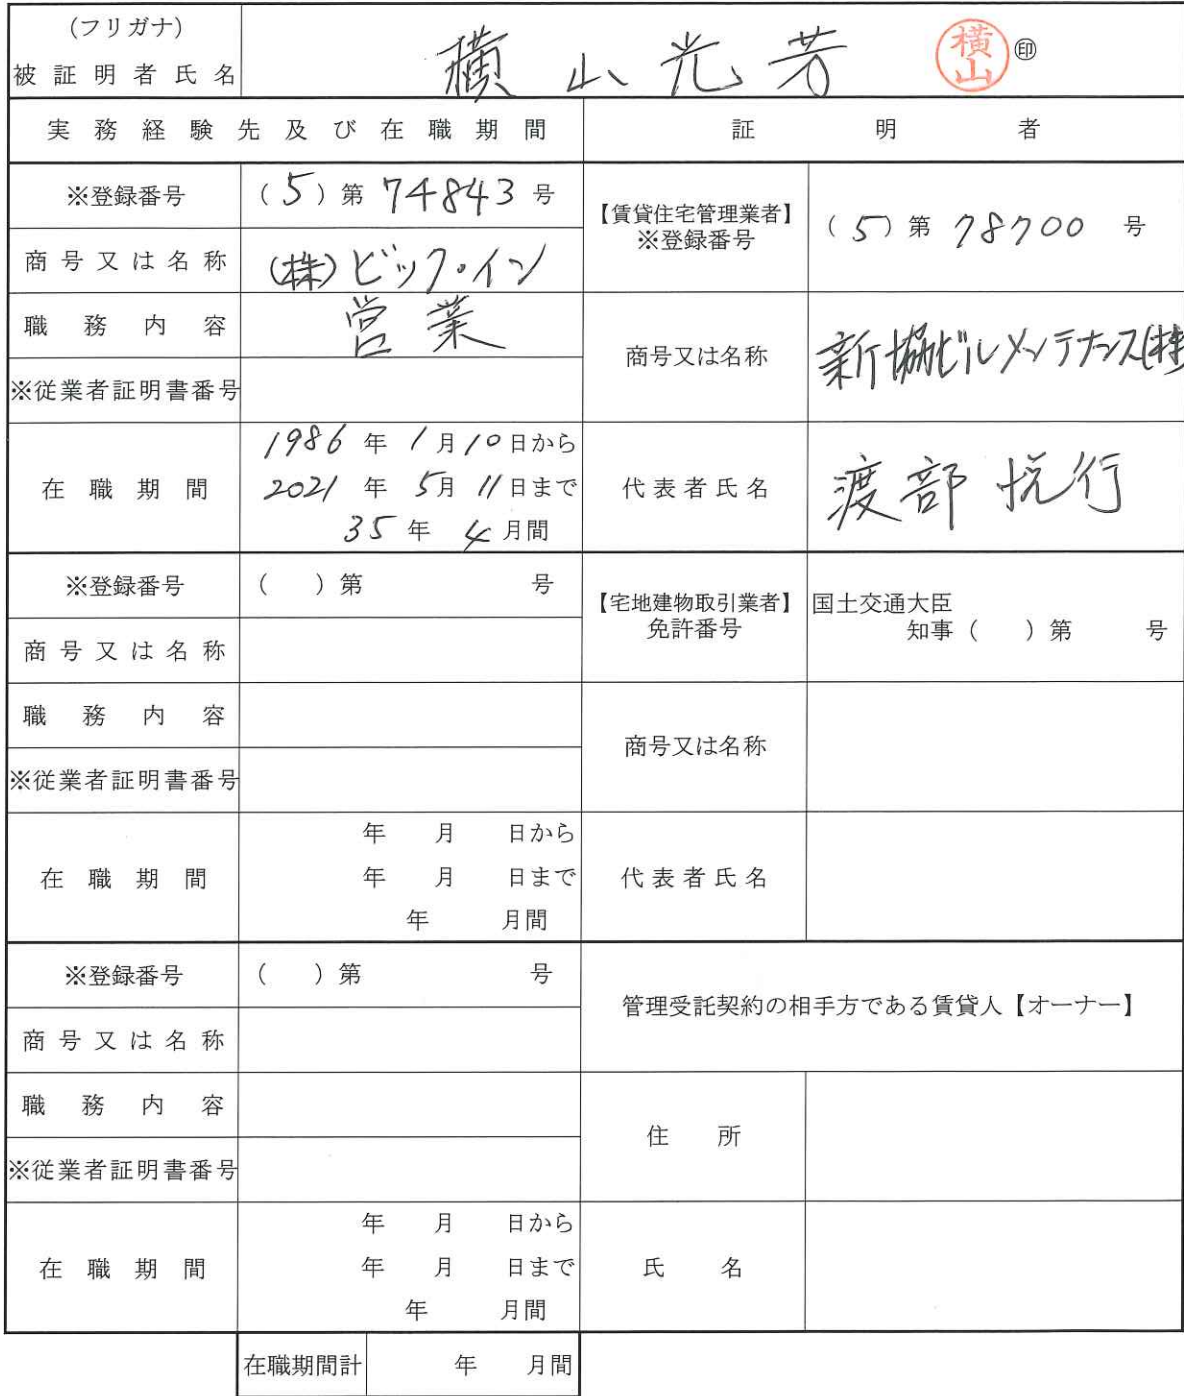 (フリガナ)
被証明者氏名 横山光芳 横山 ㊞
実務経験先及び在職期間 証明者
※登録番号 (5)第74843号
【賃貸住宅管理業者】
※登録番号 (5)第78700号
商号又は名称 (株)ビック・イン
職務内容 営業
商号又は名称 新協ビルメンテナンス(株
※従業者証明書番号
在職期間 1986年1月10日から
2021年5月11日まで
35年4月間
代表者氏名 渡部悦行
※登録番号 ( )第 号
【宅地建物取引業者】
免許番号
国土交通大臣
知事( )第 号
商号又は名称
職務内容
商号又は名称
※従業者証明書番号
在職期間 年 月 日から
年 月 日まで
年 月間
代表者氏名
※登録番号 ( )第 号
管理受託契約の相手方である賃貸人【オーナー】
商号又は名称
職務内容
住所
※従業者証明書番号
在職期間 年 月 日から
年 月 日まで
年 月間
氏名
在職期間計 年 月間